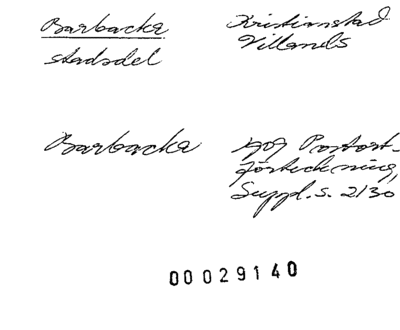 Barbacka
stadsdel
Kristianstad
Villands
Barbacka
1909 Postort-
förteckning,
Suppl. s. 2130
00029140